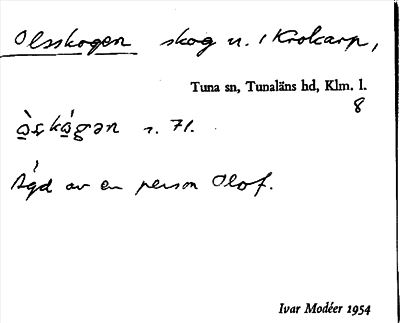 Olsskogen skog u. i Krokarp,
Tuna sn, Tunaläns hd, Klm. l.
8
s. 71.
Ägd av en person Olof.
Ivar Modéer 1954